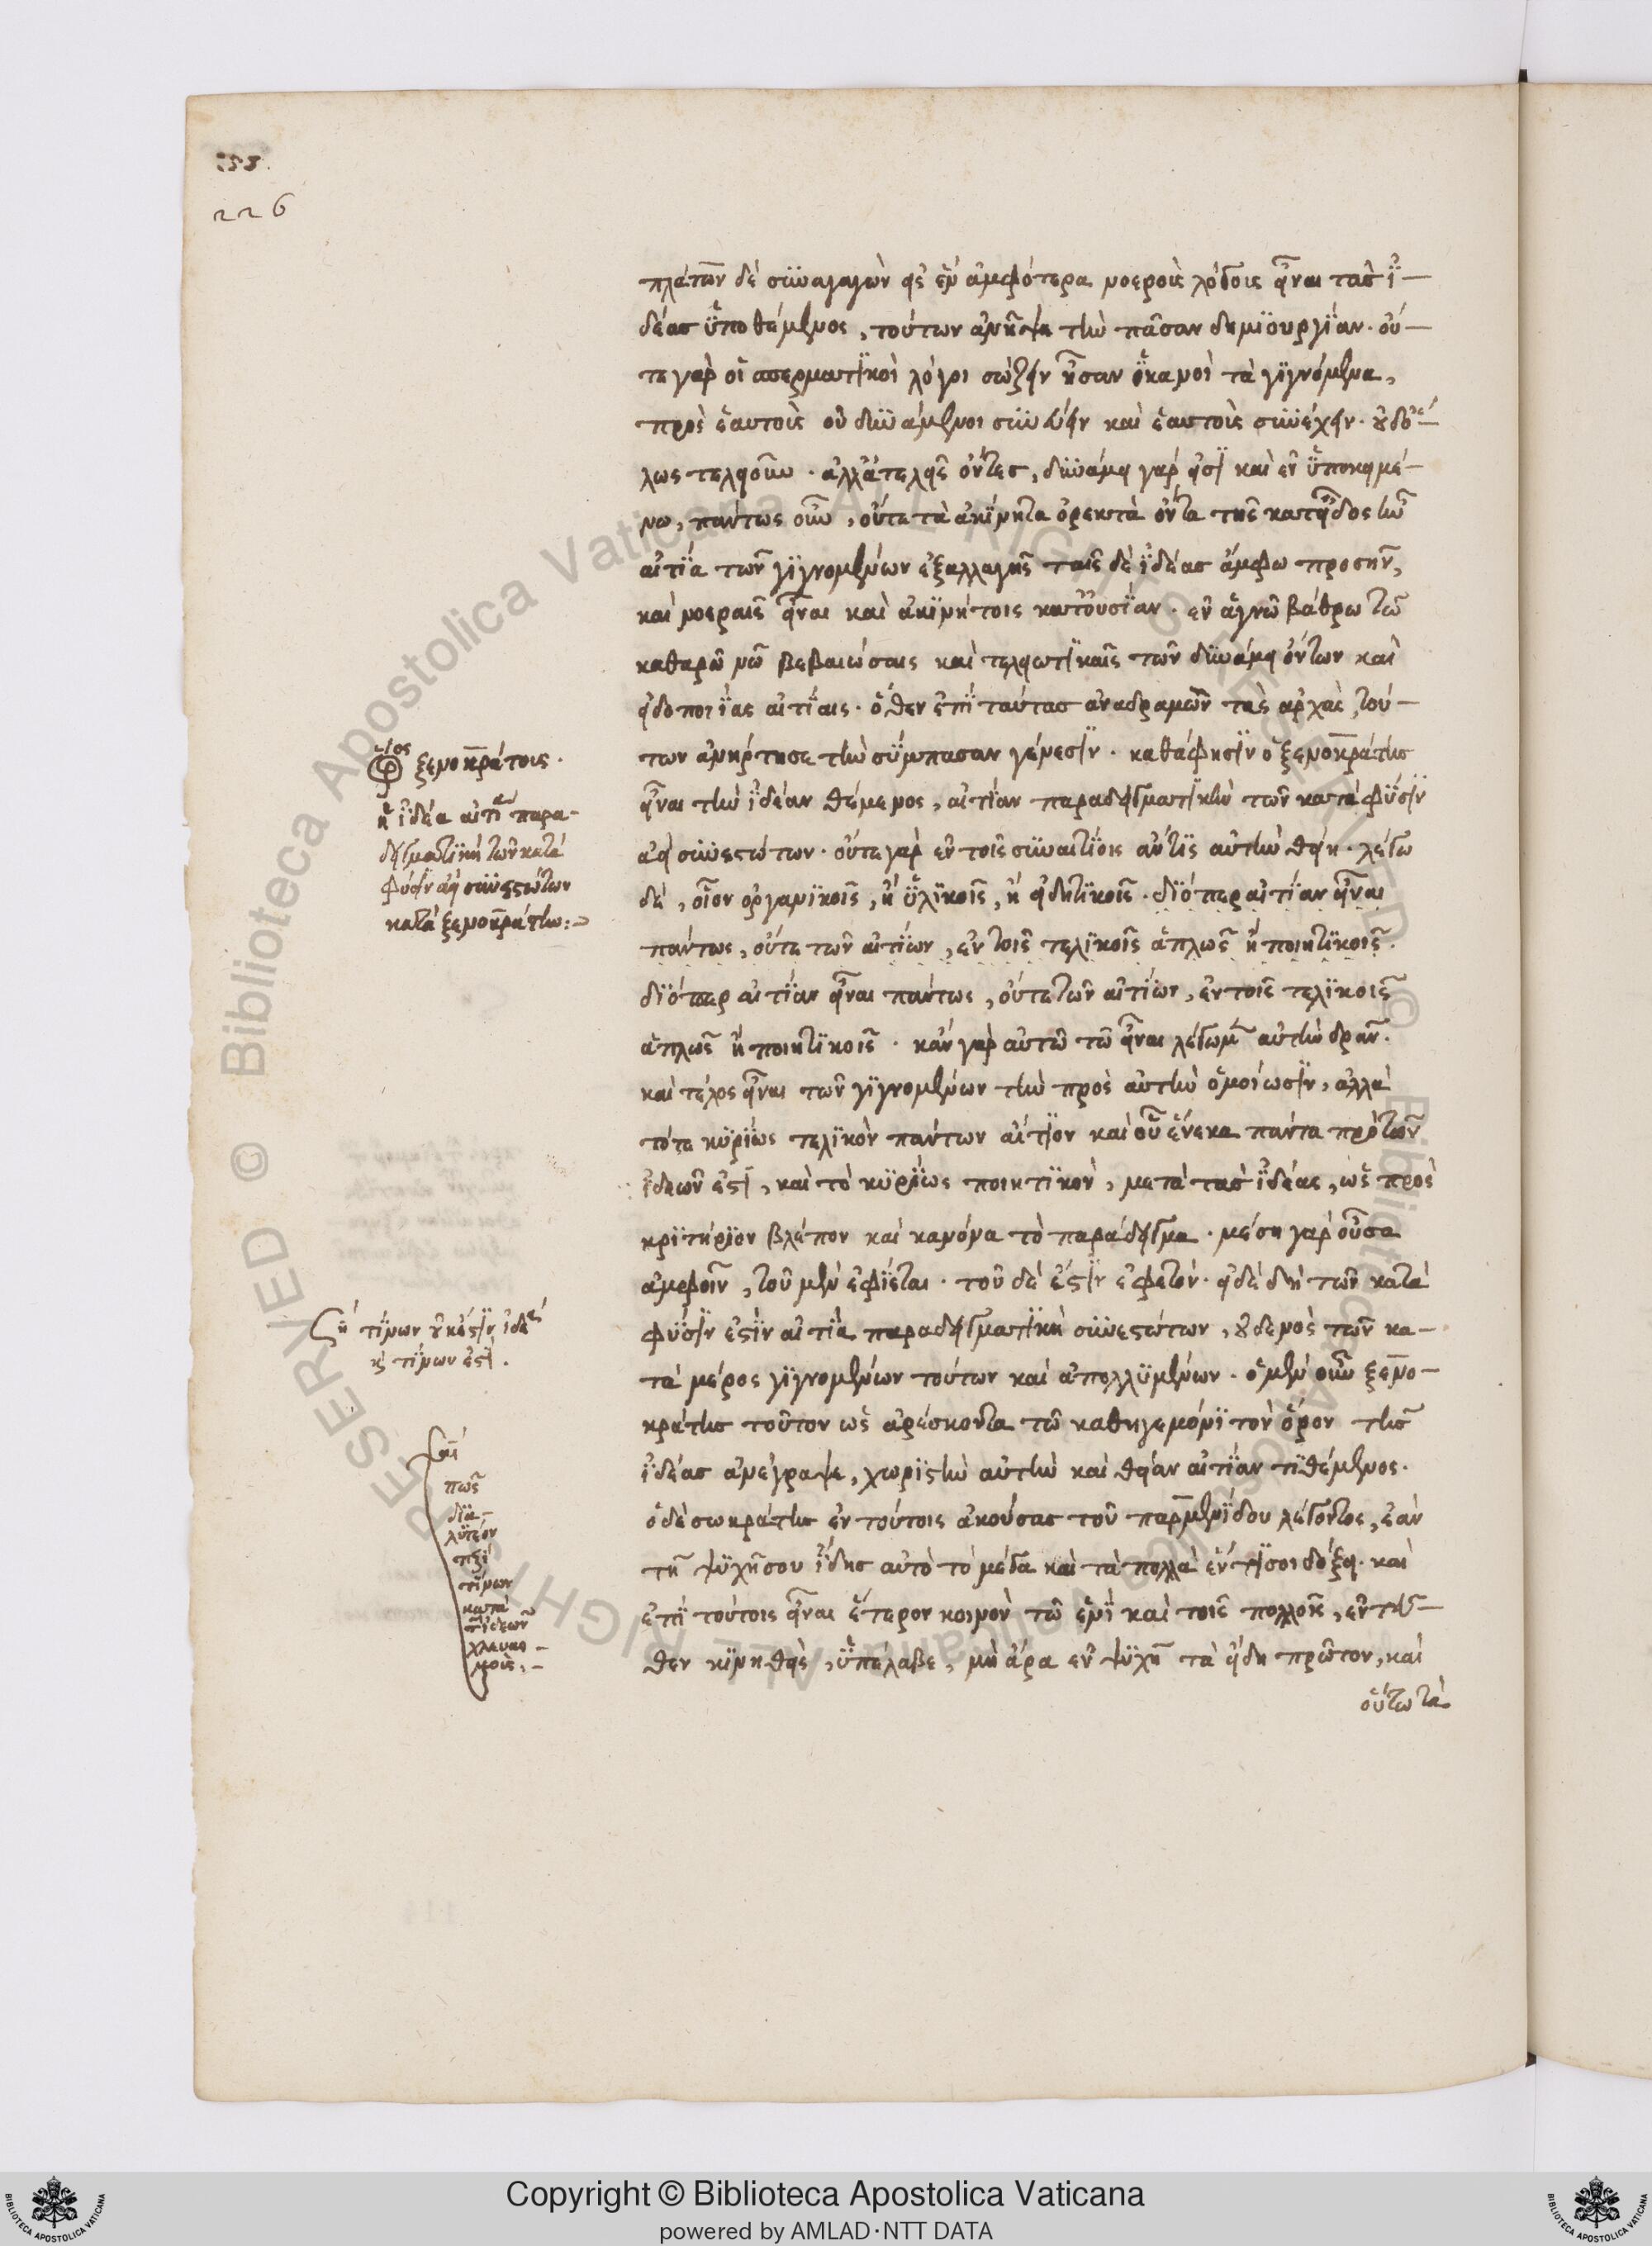 226
πλάτων δὲ συναγαγὼν εἰς ἓν ἀμφότερα νοεροὺς λόγους εἶναι τὰς ἰ-
δέας ὑποθέμενος, τούτων ἀνῆψε τὴν πᾶσαν δημιουργίαν. οὔ-
τε γὰρ οἱ σπερματικοὶ λόγοι σώζειν ἦσαν ἱκανοὶ τὰ γιγνόμενα,
πρὸς ἑαυτοὺς οὐ δυνάμενοι συννεύειν καὶ ἑαυτοὺς συνέχειν. οὐδ' ὅ-
λως τελειοῦν. ἀλλ' ἀτελεῖς ὄντες, δυνάμει γάρ εἰσι καὶ ἐν ὑποκειμέ-
νω, πάντως οὖν, οὔτε τὰ ἀκίνητα ὀρεκτὰ ὄντα τῆς κατ' εἶδος ἦν
αἰτία τῶν γιγνομένων ἐξαλλαγῆς ταῖς δὲ ἰδέας ἄμφω προσῆν,
καὶ νοεραῖς εἶναι καὶ ἀκινήτοις κατ' οὐσίαν. ἐν ἁγνῶ βάθρω τῶ
καθαρῶ νῶ βεβαιώσαις καὶ τελειωτικαῖς τῶν δυνάμει ὄντων καὶ
εἰδοποιίας αἰτίαις. ὅθεν ἐπὶ ταύτας ἀναδραμὼν τὰς ἀρχὰς, τού-
των ἀνήρτησε τὴν σύμπασαν γένεσιν. καθά φησιν ὁ ξενοκράτης
εἶναι τὴν ἰδέαν θέμενος, αἰτίαν παραδειγματικὴν τῶν κατὰ φύσιν
ἀεὶ συνεστώτων. οὔτε γὰρ ἐν τοῖς συναιτίοις ἄν τις αὐτὴν θείη. λέγω
δὲ, οἷον ὀργανικοῖς, ἢ ὑλικοῖς, ἢ εἰδητικοῖς. διόπερ αἰτίαν εἶναι
πάντως, οὔτε τῶν αἰτίων, ἐν τοῖς τελικοῖς ἁπλῶς ἢ ποιητικοῖς.
διόπερ αἰτίαν εἶναι πάντως, οὔτε τῶν αἰτίων, ἐν τοῖς τελικοῖς
ἁπλῶς ἢ ποιητικοῖς. κἂν γὰρ αὐτῶ τῶ εἶναι λέγωμεν αὐτὴν δρᾶν.
καὶ τέλος εἶναι τῶν γιγνομένων τὴν πρὸς αὐτὴν ὁμοίωσιν, ἀλλὰ
τό τε κυρίως τελικὸν πάντων αἴτιον καὶ οὗ ἕνεκα πάντα πρὸ τῶν
ἰδεῶν ἐστι, καὶ τὸ κυρίως ποιητικὸν, μετὰ τὰς ἰδέας, ὡς πρὸς
κριτήριον βλέπον καὶ κανόνα τὸ παράδειγμα. μέση γὰρ οὖσα
ἀμφοῖν, τοῦ μὲν ἐφίεται. τοῦ δέ ἐστιν ἐφετόν. εἰ δὲ δὴ τῶν κατὰ
φύσιν ἐστὶν αἰτία παραδειγματικὴ συνεστώτων, οὐδενὸς τῶν κα-
τὰ μέρος γιγνομένων τούτων καὶ ἀπολλυμένων. ὁ μὲν οὖν ξενο-
κράτης τοῦτον ὡς ἀρέσκοντα τῶ καθηγεμόνι τὸν ὅρον τῆς
ἰδέας ἀνέγραψε, χωριστὴν αὐτὴν καὶ θείαν αἰτίαν τιθέμενος.
ὁ δὲ σωκράτης ἐν τούτοις ἀκούσας τοῦ παρμενίδου λέγοντος, ἐὰν
τῆ ψυχῆ σου ἴδης αὐτὸ τὸ μέγα καὶ τὰ πολλὰ ἕν τι σοι δόξει. καὶ
ἐπὶ τούτοις εἶναι ἕτερον κοινὸν τῶ ἑνὶ καὶ τοῖς πολλοῖς, ἐντεῦ-
θεν κινηθεὶς, ὑπέλαβε, μὴ ἄρα ἐν ψυχῆ τὰ εἴδη πρῶτον, καὶ
οὕτω τὰ
ὅρος ξενοκράτους.
ἡ ἰδέα αἰτία παρα-
δειγματικὴ τῶν κατὰ
φύσιν ἀεὶ συνεστώτων
κατὰ ξενοκράτην:
τίνων οὐκ ἔστιν ἰδέα
καὶ τίνων ἐστί.
καὶ
πῶς
δια-
λυτέον
περὶ
τίνων
κατὰ
τῶν ἰδεῶν
χλευασ-
μούς.